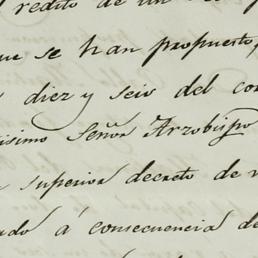 redito de un
que se han propuesto,
diez y seis del co
isimo Señor Arzobispo
superior decreto de
ado á consecuencia de